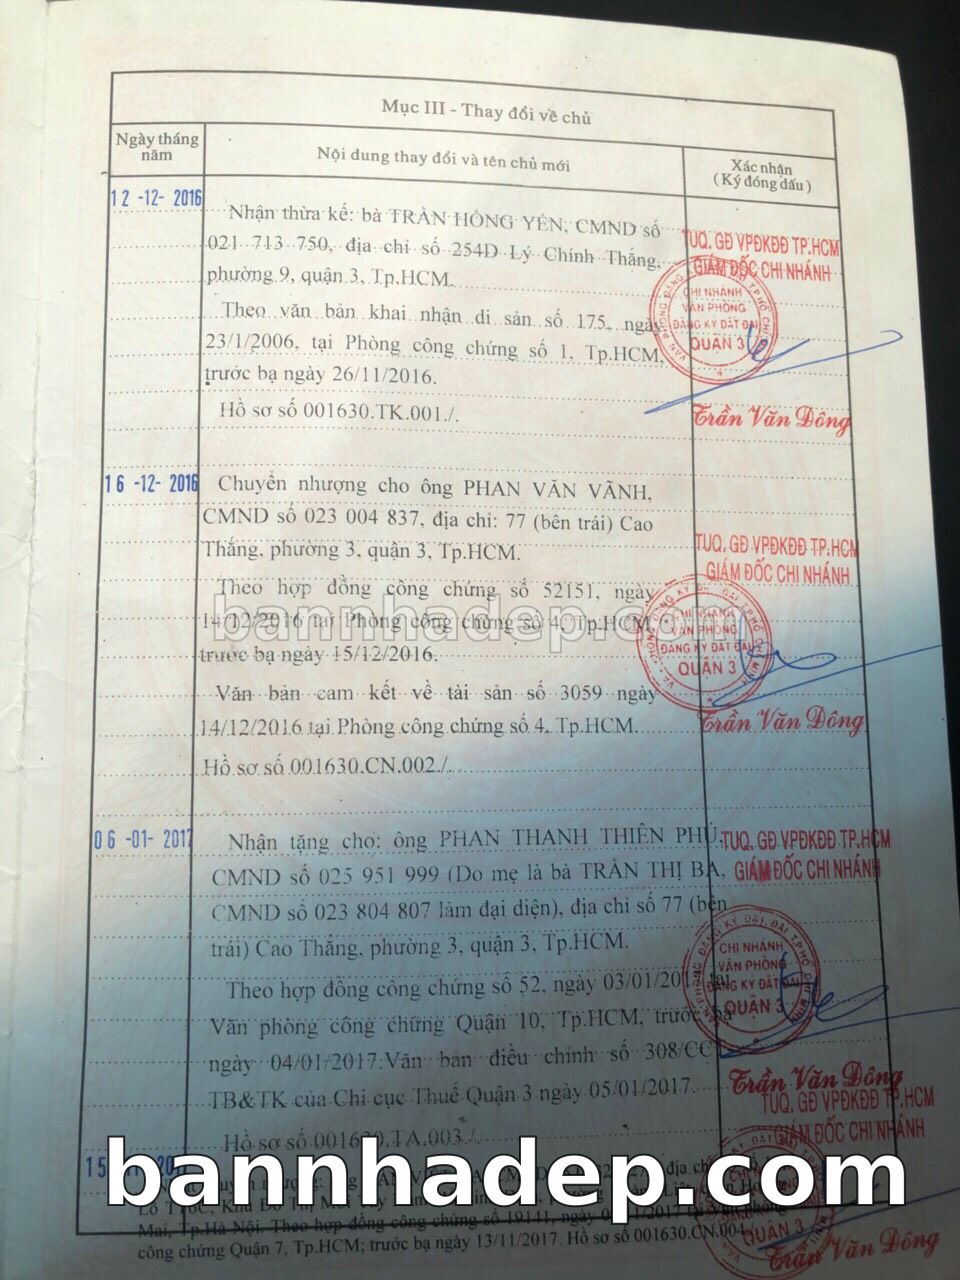 Mục III - Thay đổi về chủ
Ngày tháng năm
Nội dung thay đổi và tên chủ mới
Xác nhận
(Ký đóng dấu)
12 -12- 2016
Nhận thừa kế: bà TRẦN HỒNG YẾN, CMND số
021 713 750, địa chỉ số 254D Lý Chính Thắng,
phường 9, quận 3, Tp.HCM.
Theo văn bản khai nhận di sản số 175, ngày
23/1/2006, tại Phòng công chứng số 1, Tp.HCM,
trước bạ ngày 26/11/2016.
Hồ sơ số 001630.TK.001./.
TUQ. GĐ VPĐKĐĐ TP.HCM
GIÁM ĐỐC CHI NHÁNH
CHI NHÁNH
VĂN PHÒNG
ĐĂNG KÝ ĐẤT ĐAI
QUẬN 3
Trần Văn Dông
16 -12- 2016
Chuyển nhượng cho ông PHAN VĂN VÃNH,
CMND số 023 004 837, địa chỉ: 77 (bên trái) Cao
Thắng, phường 3, quận 3, Tp.HCM.
Theo hợp đồng công chứng số 52151, ngày
14/12/2016 tại Phòng công chứng số 4, Tp.HCM,
trước bạ ngày 15/12/2016.
Văn bản cam kết về tài sản số 3059 ngày
14/12/2016 tại Phòng công chứng số 4, Tp.HCM.
Hồ sơ số 001630.CN.002./.
bannhadep.com
TUQ. GĐ VPĐKĐĐ TP.HCM
GIÁM ĐỐC CHI NHÁNH
CHI NHÁNH
VĂN PHÒNG
ĐĂNG KÝ ĐẤT ĐAI
QUẬN 3
Trần Văn Dông
06 -01- 2017
Nhận tặng cho: ông PHAN THANH THIÊN PHÚ,
CMND số 025 951 999 (Do mẹ là bà TRẦN THỊ BA,
CMND số 023 804 807 làm đại diện), địa chỉ số 77 (bên
trái) Cao Thắng, phường 3, quận 3, Tp.HCM.
Theo hợp đồng công chứng số 52, ngày 03/01/201 tại
Văn phòng công chứng Quận 10, Tp.HCM, trước bạ
ngày 04/01/2017.Văn bản điều chỉnh số 308/CC
TB&TK của Chi cục Thuế Quận 3 ngày 05/01/2017.
Hồ sơ số 001630.TA.003./.
TUQ. GĐ VPĐKĐĐ TP.HCM
GIÁM ĐỐC CHI NHÁNH
CHI NHÁNH
VĂN PHÒNG
ĐĂNG KÝ ĐẤT ĐAI
QUẬN 3
Trần Văn Dông
TUQ. GĐ VPĐKĐĐ TP.HCM
GIÁM ĐỐC CHI NHÁNH
15
bannhadep.com
Mai, Tp.Hà Nội. Theo hợp đồng công chứng số 19141, ngày
công chứng Quận 7, Tp.HCM; trước bạ ngày 13/11/2017. Hồ sơ số 001630.CN.004
QUẬN 3
Trần Văn Dông